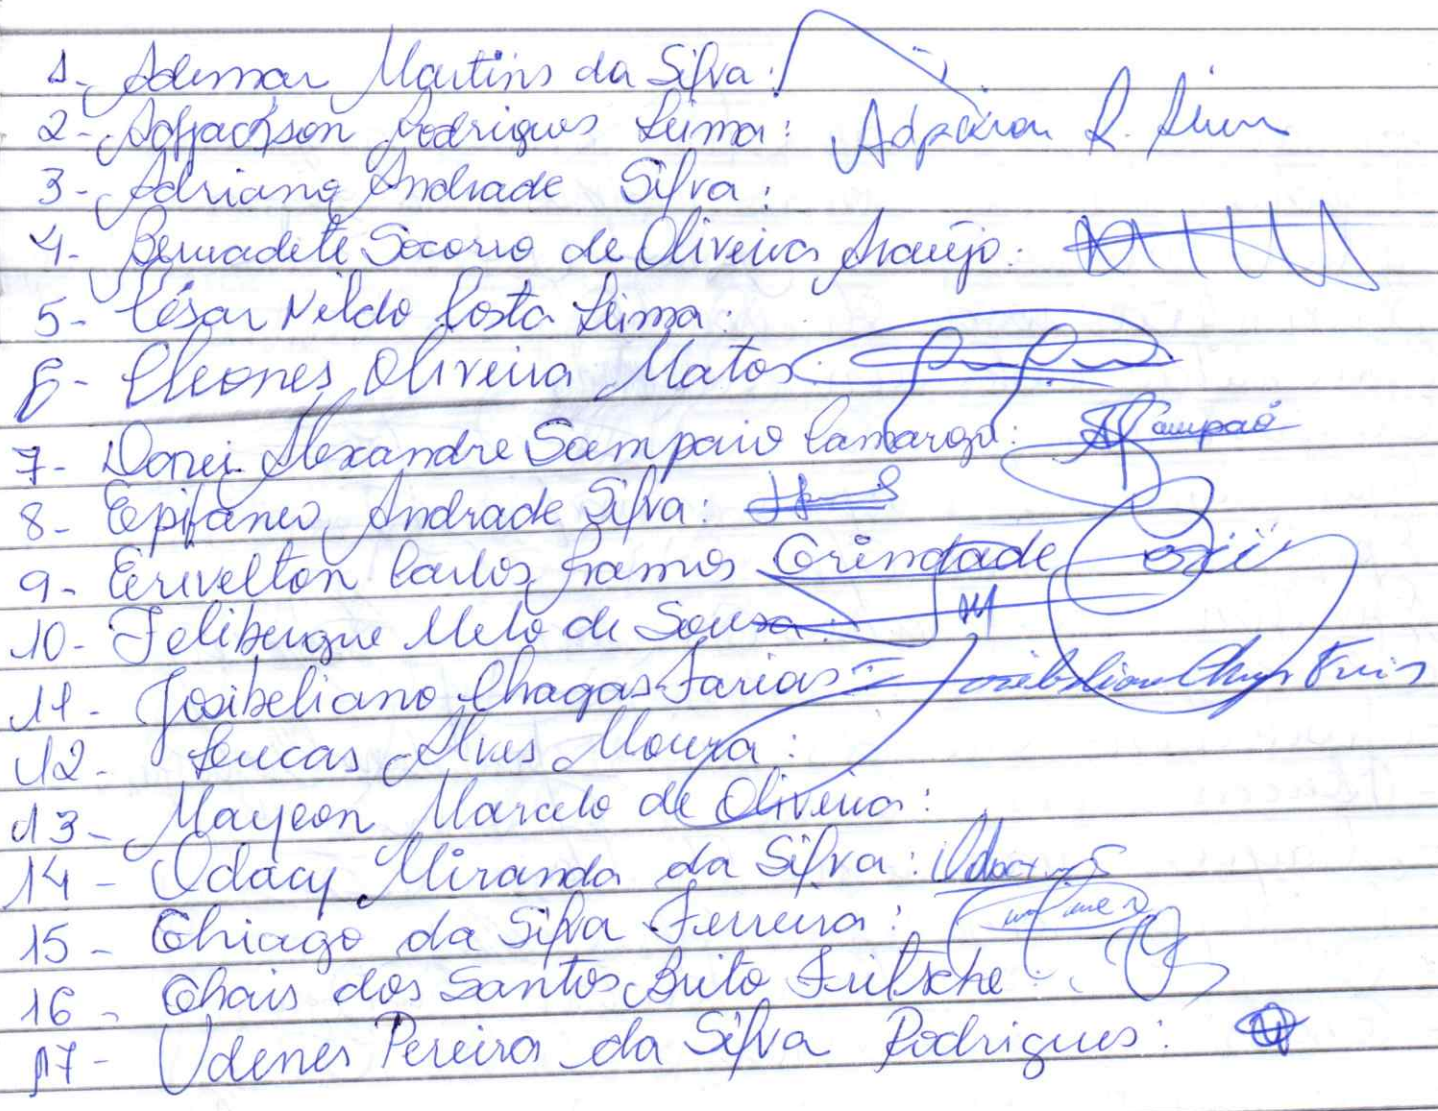 1- Ademar Martins da Silva:
2- Adjackson Rodrigues Lima:
3- Adriano Andrade Silva:
4- Bernadete Socorro de Oliveira Araújo:
5- César Nildo Costa Lima:
6- Cleones Oliveira Matos:
7- Donei Alexandre Sampaio Camargo: Sampaio
8- Epifaneo Andrade Silva:
9- Erivelton Carlos Ramos Trindade
10- Felibergue Melo de Sousa:
11- Josibeliano Chagas Farias:
12- Lucas Alves Moura:
13- Maycon Marcelo de Oliveira:
14- Odacy Miranda da Silva:
15- Thiago da Silva Ferreira:
16- Thais dos Santos Brito Fritsche
17- Udenes Pereira da Silva Rodrigues: